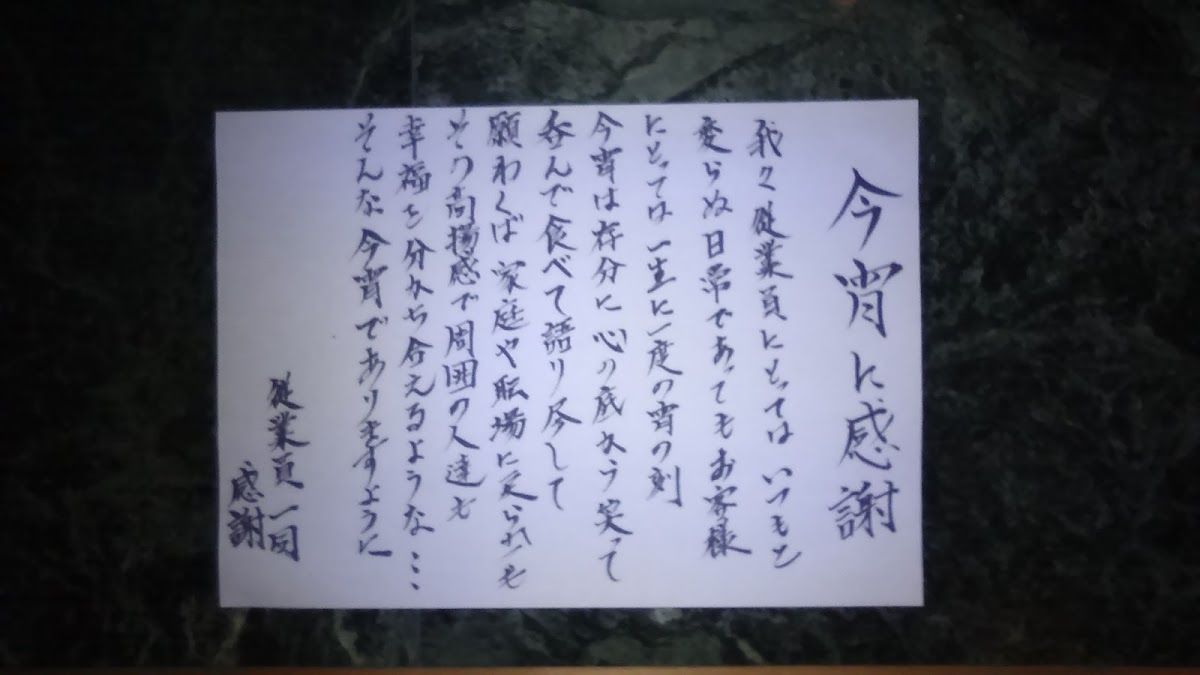 今宵に感謝
我々従業員にとってはいつもと
変らぬ日常であってもお客様
にとっては一生に一度の宵の刻
今宵は存分に心の底から笑って
呑んで食べて語り尽して
願わくば家庭や職場に戻られても
その高揚感で周囲の人達も
幸福を分かち合えるような…
そんな今宵でありますように
従業員一同
感謝